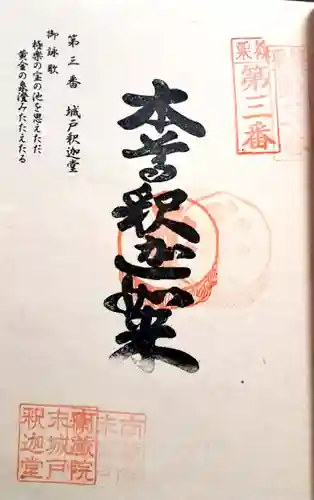 第三番
本尊釈迦如来
第三番 城戸釈迦堂
御詠歌
極楽の宝の池を思えただ
黄金の泉澄みたたえたる
宝蔵院
末城戸
釈迦堂